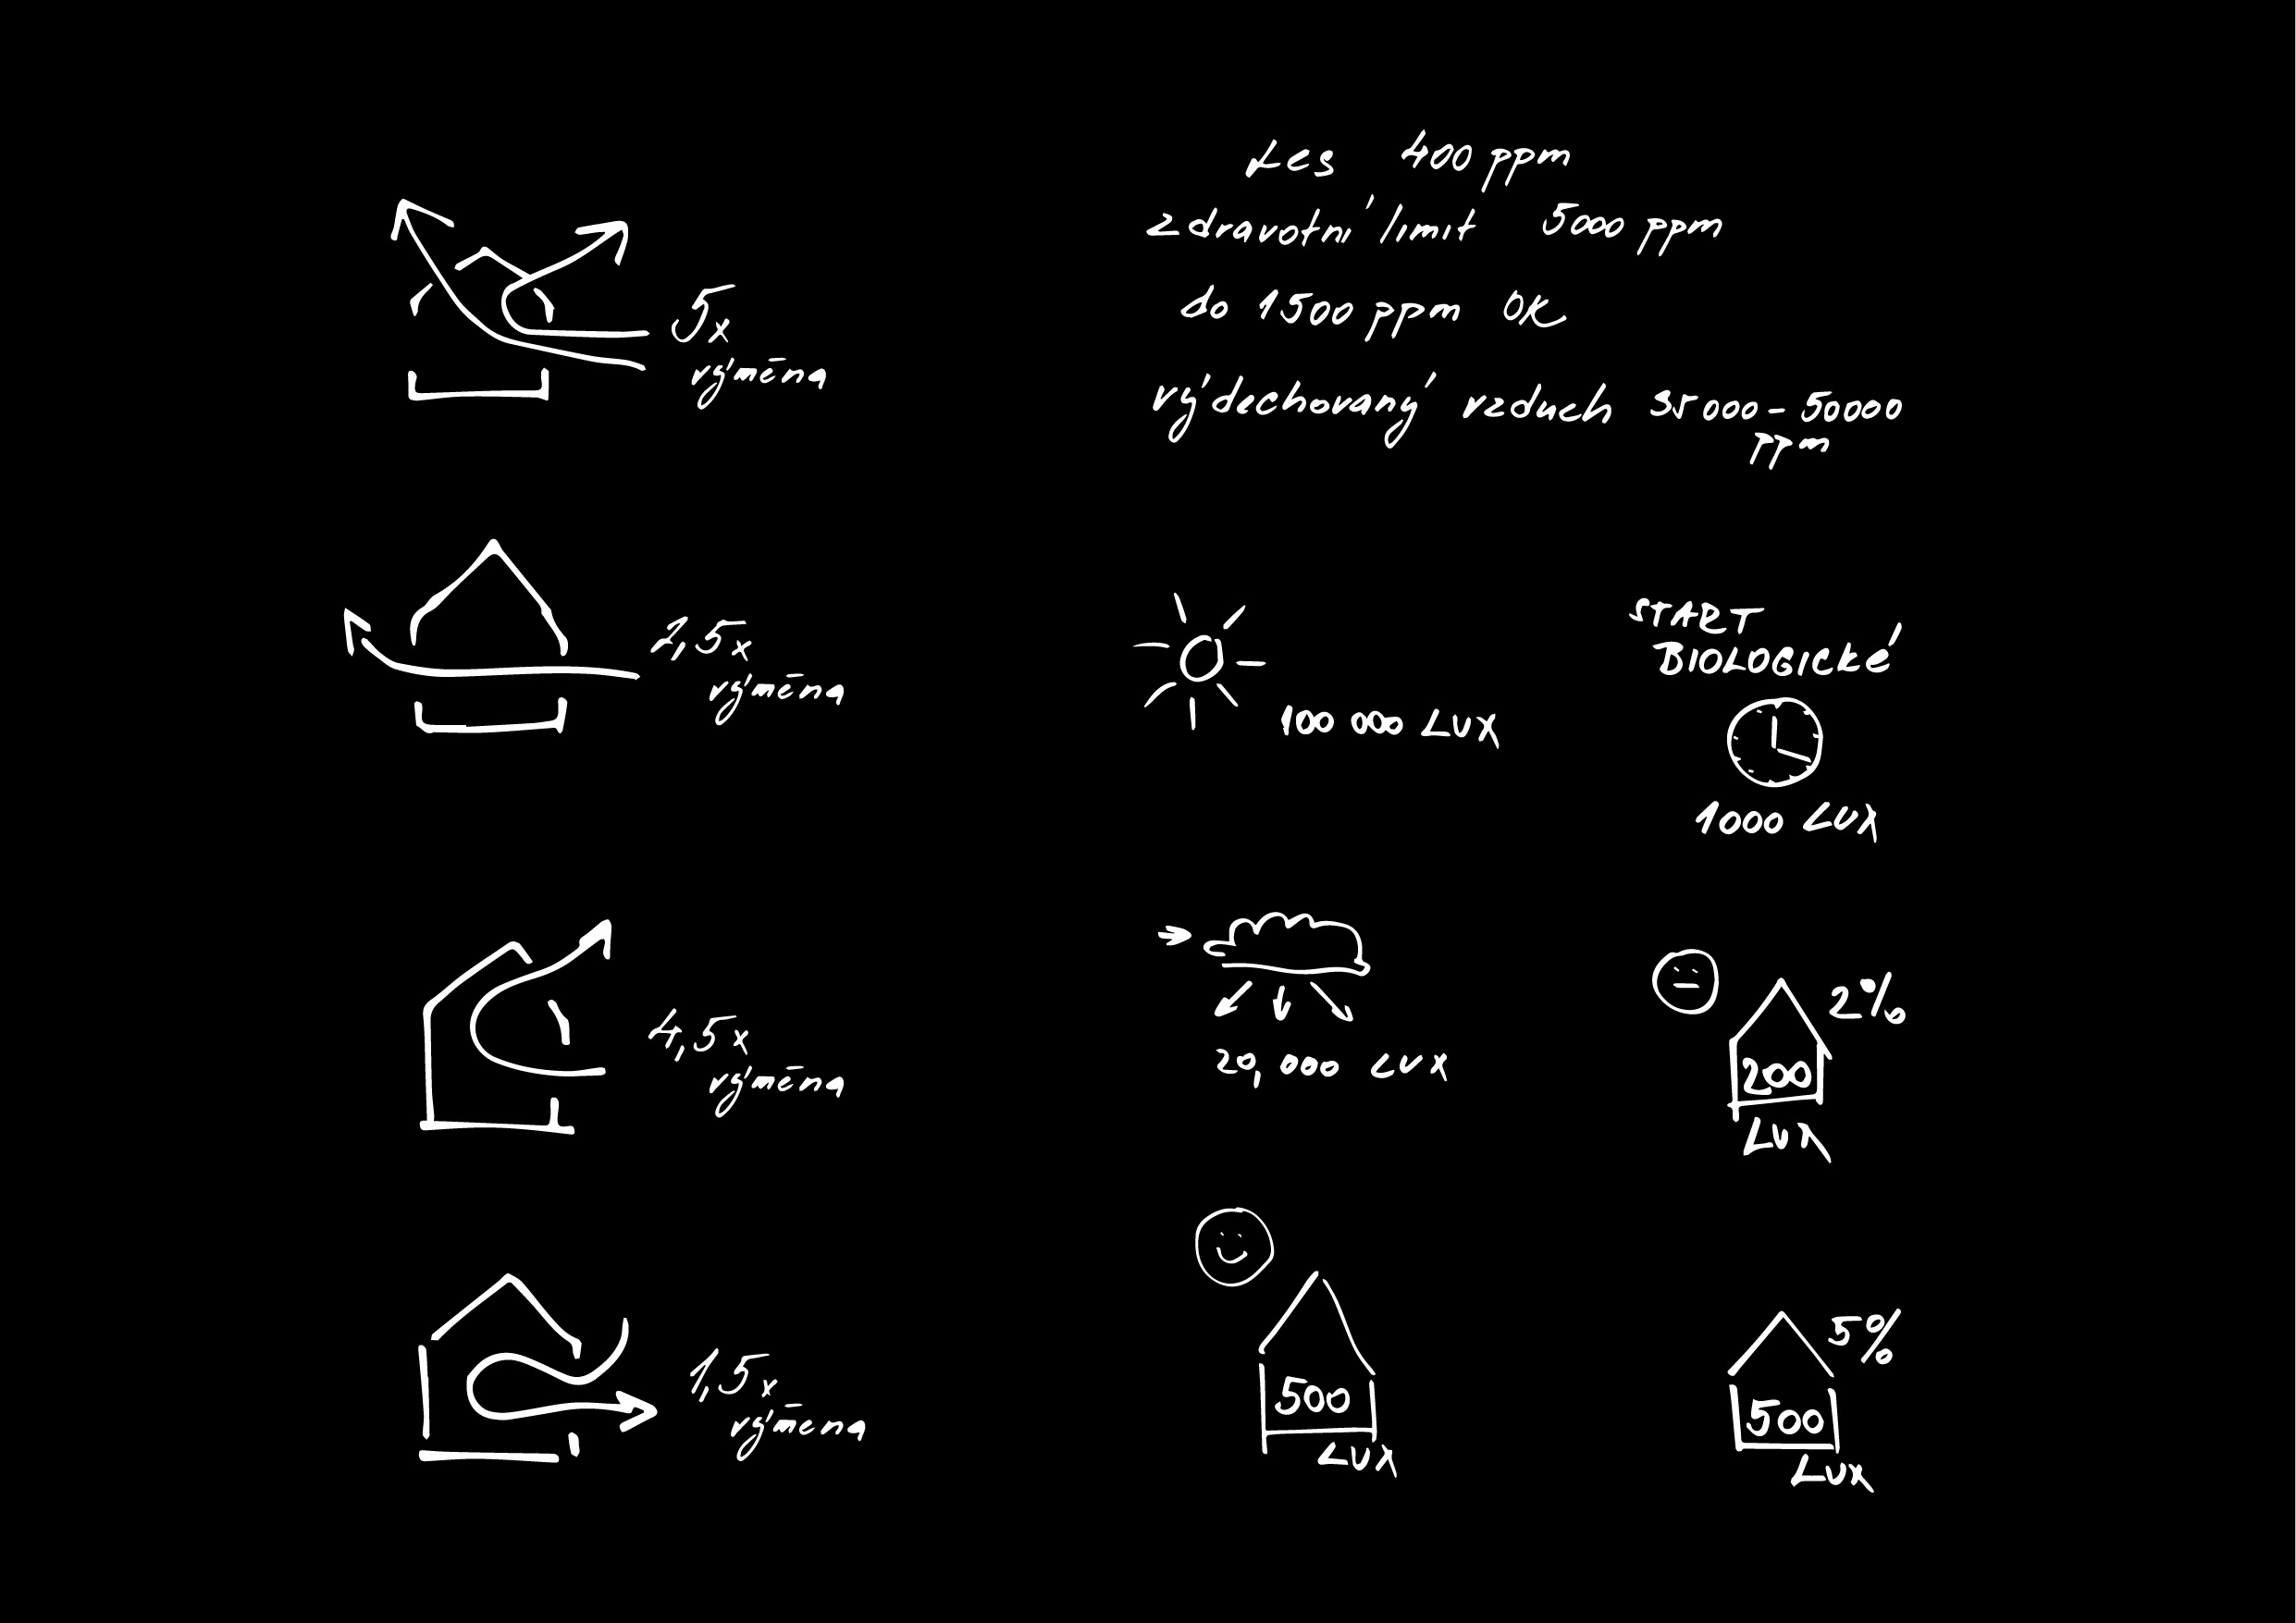 5x
výměna
1,5x
výměna
4,5x
výměna
1,5x
výměna
Les 400 ppm
zdravotní limit 5000 ppm
do 1500 ppm OK
Vydechovaný vzduch 35 000 – 50 000
ppm
100 000 LUX
START
BIOLOGICKÉ
1000 LUX
20,000 LUX
2%
200
LUX
500
LUX
5%
500
LUX